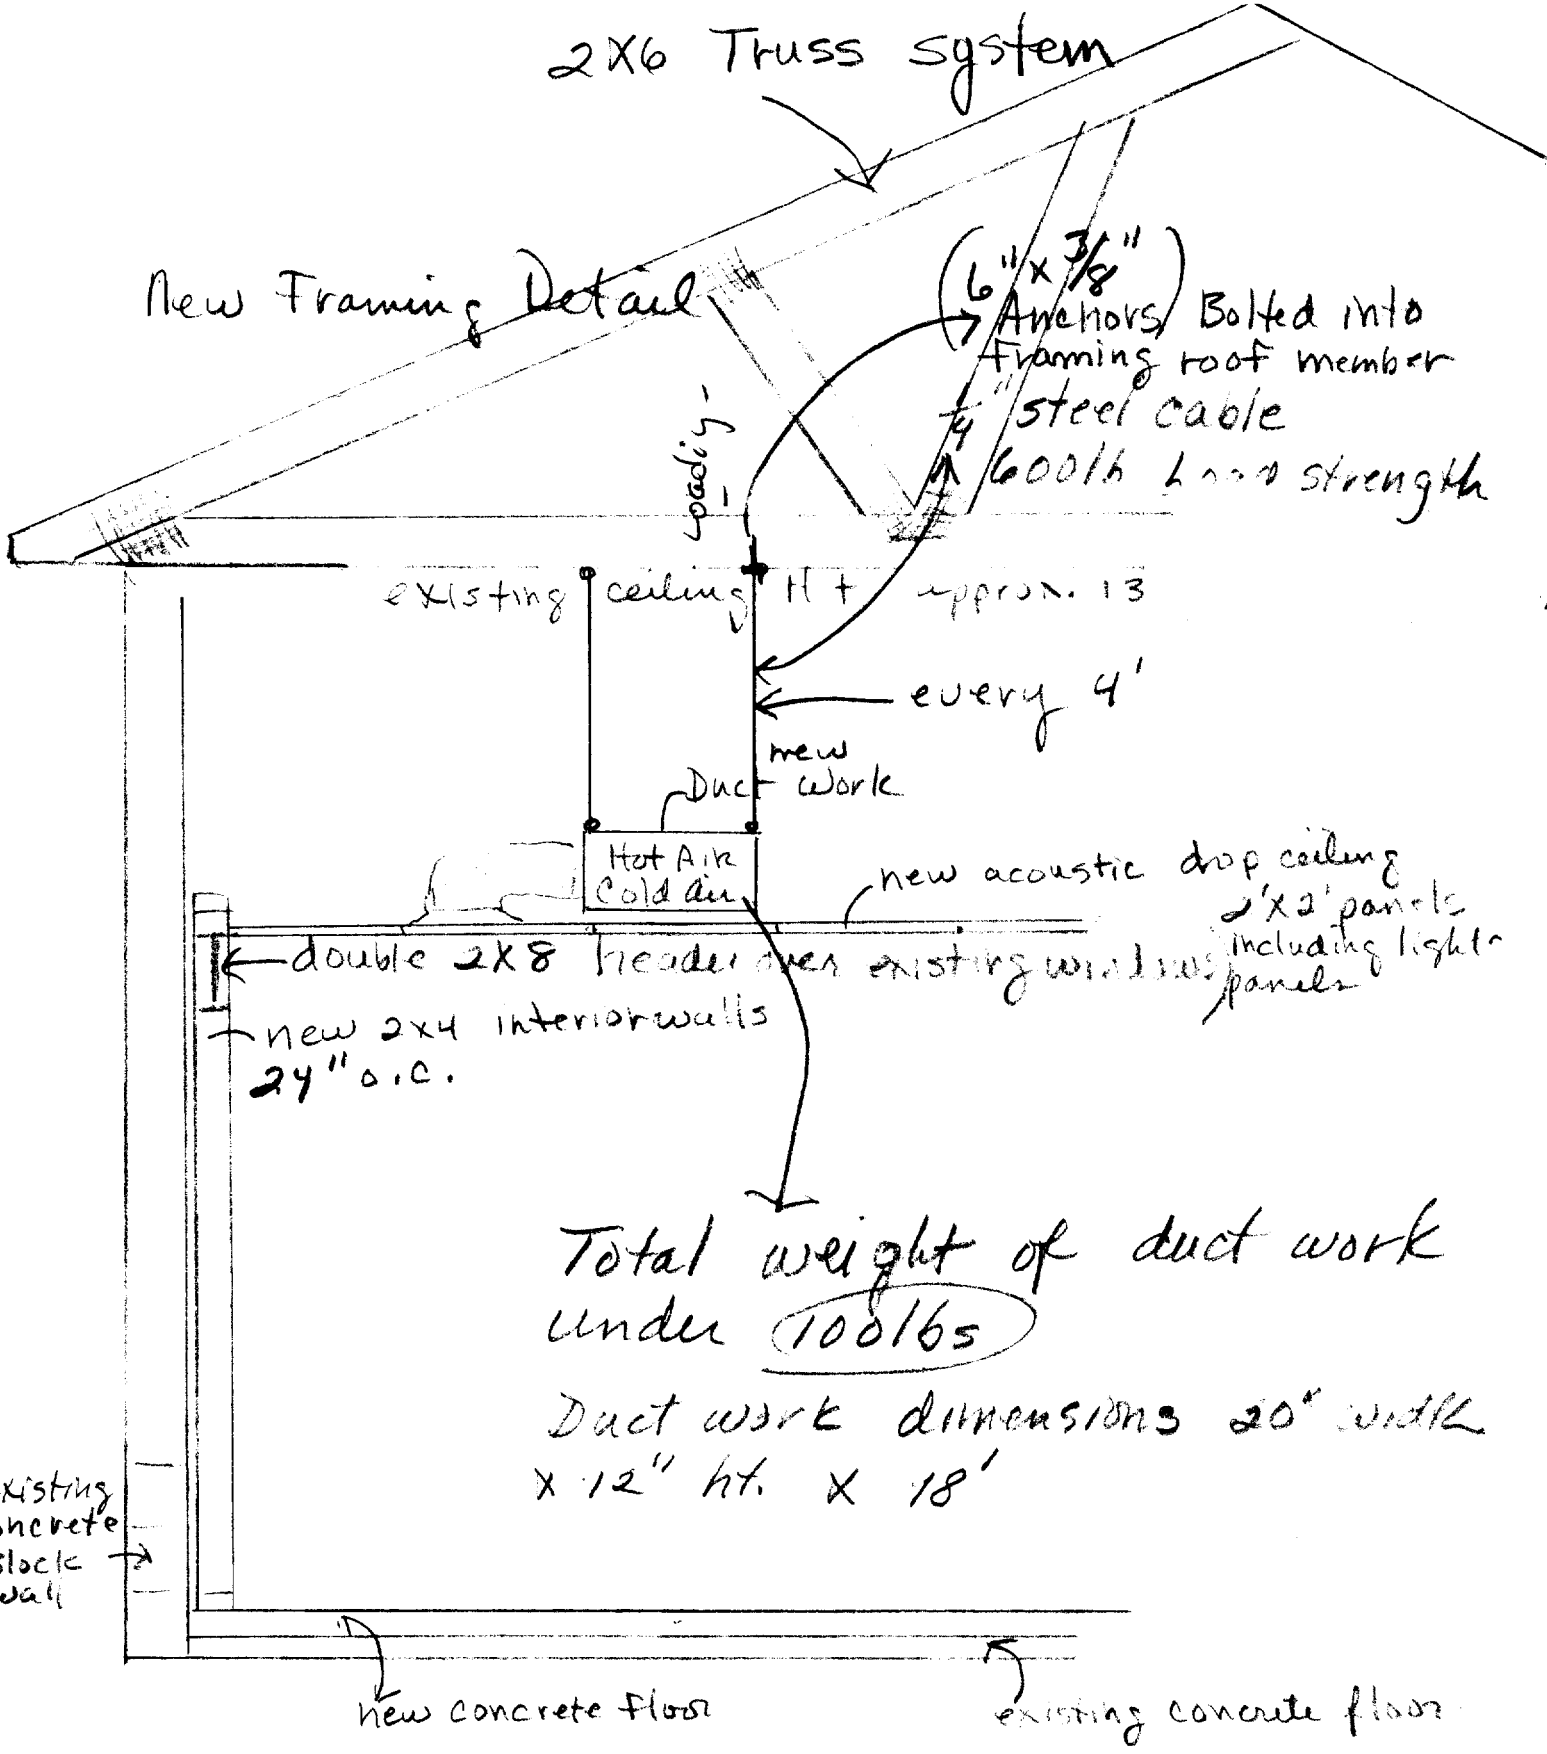 2X6 Truss system
New Framing Detail
(6" x 3/8"
Anchors) Bolted into
framing roof member
1/4" steel cable
600lb strength
Loading
existing ceiling Ht approx. 13
every 4'
new
Duct work
Hot Air
Cold air
new acoustic drop ceiling
2'X2' panels
including light
panels
double 2X8 header over existing windows
new 2x4 interior walls
24" o.c.
Total weight of duct work
under 100lbs
Duct work dimensions 20" width
x 12" ht. x 18'
xisting
oncrete
block
wall
new concrete floor
existing concrete floor